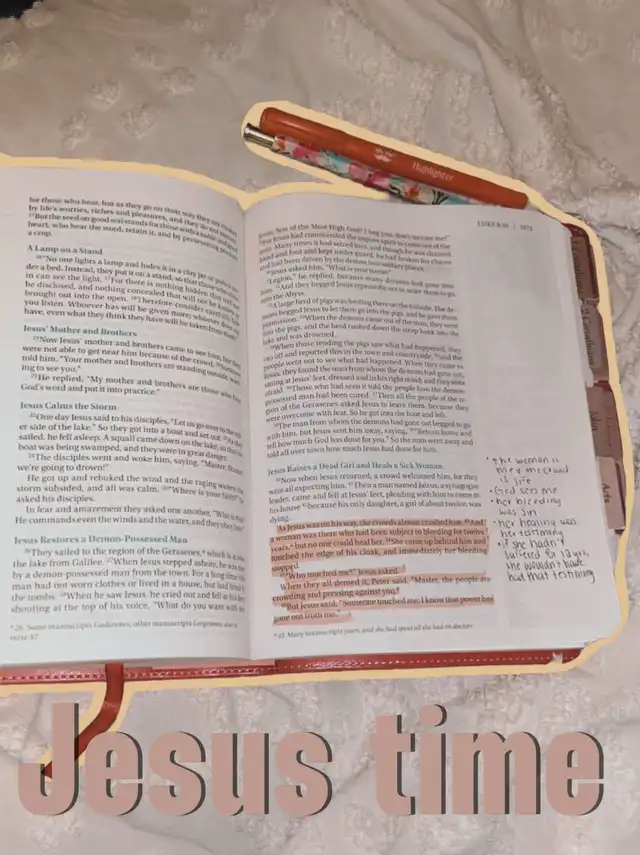 for those who hear, but as they go on their way they are choked
by life's worries, riches and pleasures, and they do not mature.
15But the seed on good soil stands for those with a noble and good
heart, who hear the word, retain it, and by persevering produce
a crop.
A Lamp on a Stand
16"No one lights a lamp and hides it in a clay jar or puts it un-
der a bed. Instead, they put it on a stand, so that those who come
in can see the light. 17For there is nothing hidden that will not
be disclosed, and nothing concealed that will not be known or
brought out into the open. 18Therefore consider carefully how
you listen. Whoever has will be given more; whoever does not
have, even what they think they have will be taken from them."
Jesus' Mother and Brothers
19Now Jesus' mother and brothers came to see him, but they
were not able to get near him because of the crowd. 20Someone
told him, "Your mother and brothers are standing outside, want-
ing to see you."
21He replied, "My mother and brothers are those who hear
God's word and put it into practice."
Jesus Calms the Storm
22One day Jesus said to his disciples, "Let us go over to the oth-
er side of the lake." So they got into a boat and set out. 23As they
sailed, he fell asleep. A squall came down on the lake, so that the
boat was being swamped, and they were in great danger.
24The disciples went and woke him, saying, "Master, Master,
we're going to drown!"
He got up and rebuked the wind and the raging waters; the
storm subsided, and all was calm. 25"Where is your faith?" he
asked his disciples.
In fear and amazement they asked one another, "Who is this?
He commands even the winds and the water, and they obey him."
Jesus Restores a Demon-Possessed Man
26They sailed to the region of the Gerasenes,a which is across
the lake from Galilee. 27When Jesus stepped ashore, he was met
by a demon-possessed man from the town. For a long time this
man had not worn clothes or lived in a house, but had lived in
the tombs. 28When he saw Jesus, he cried out and fell at his feet,
shouting at the top of his voice, "What do you want with me,
a 26 Some manuscripts Gadarenes; other manuscripts Gergesenes; also in
verse 37
Highlighter
LUKE 8:50 | 1073
Jesus, Son of the Most High God? I beg you, don't torture me!"
29For Jesus had commanded the impure spirit to come out of the
man. Many times it had seized him, and though he was chained
hand and foot and kept under guard, he had broken his chains
and had been driven by the demon into solitary places.
30Jesus asked him, "What is your name?"
"Legion," he replied, because many demons had gone into
him. 31And they begged Jesus repeatedly not to order them to go
into the Abyss.
32A large herd of pigs was feeding there on the hillside. The de-
mons begged Jesus to let them go into the pigs, and he gave them
permission. 33When the demons came out of the man, they went
into the pigs, and the herd rushed down the steep bank into the
lake and was drowned.
34When those tending the pigs saw what had happened, they
ran off and reported this in the town and countryside, 35and the
people went out to see what had happened. When they came to
Jesus, they found the man from whom the demons had gone out,
sitting at Jesus' feet, dressed and in his right mind; and they were
afraid. 36Those who had seen it told the people how the demon-
possessed man had been cured. 37Then all the people of the re-
gion of the Gerasenes asked Jesus to leave them, because they
were overcome with fear. So he got into the boat and left.
38The man from whom the demons had gone out begged to go
with him, but Jesus sent him away, saying, 39"Return home and
tell how much God has done for you." So the man went away and
told all over town how much Jesus had done for him.
Jesus Raises a Dead Girl and Heals a Sick Woman
40Now when Jesus returned, a crowd welcomed him, for they
were all expecting him. 41Then a man named Jairus, a synagogue
leader, came and fell at Jesus' feet, pleading with him to come to
his house 42because his only daughter, a girl of about twelve, was
dying.
As Jesus was on his way, the crowds almost crushed him. 43And
a woman was there who had been subject to bleeding for twelve
years,a but no one could heal her. 44She came up behind him and
touched the edge of his cloak, and immediately her bleeding
stopped.
45"Who touched me?" Jesus asked.
When they all denied it, Peter said, "Master, the people are
crowding and pressing against you."
46But Jesus said, "Someone touched me; I know that power has
gone out from me."
a 43 Many manuscripts years, and she had spent all she had on doctors
the woman is
life
God sees me
her bleeding
was sin
her healing was
her testimony
if she hadn't
suffered for 12 yrs,
she wouldn't have
had that testimony
Acts
Jesus time